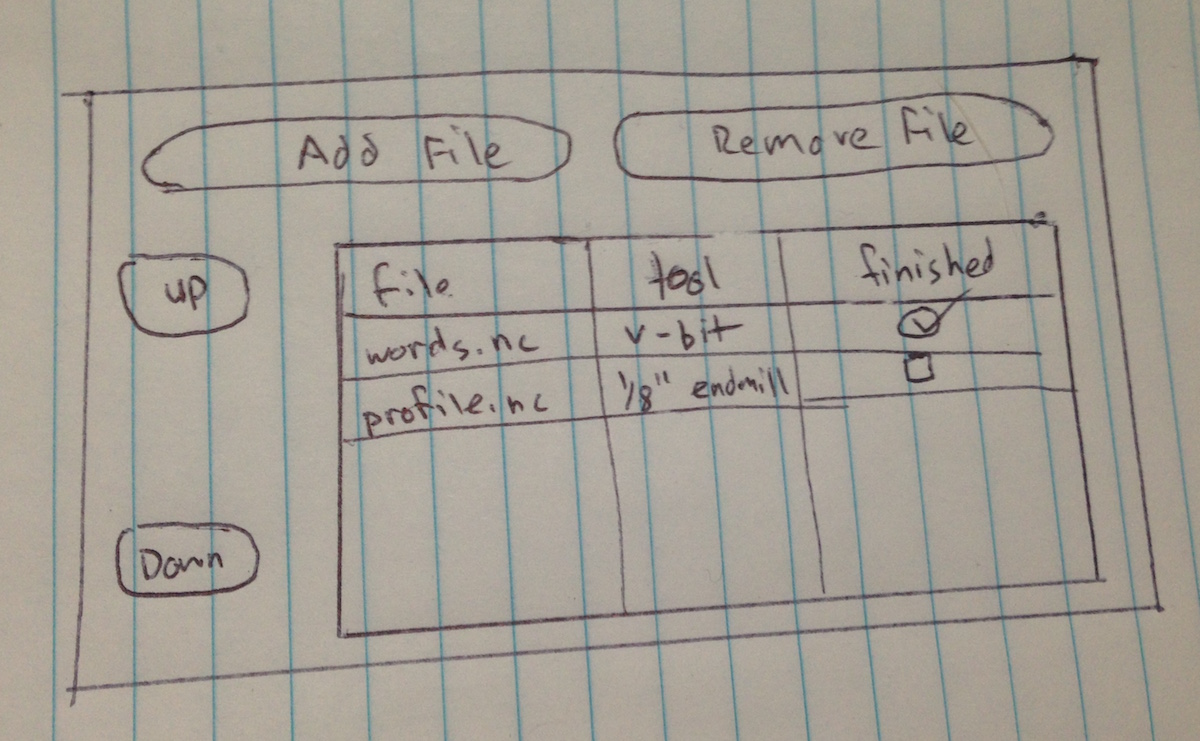 Add File Remove File
up file tool finished
words.nc v-bit
profile.nc 1/8" endmill
Down